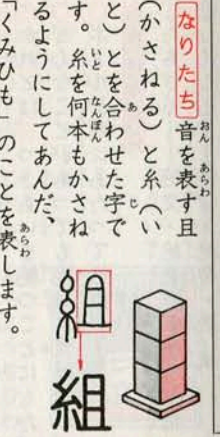 なりたち 音を表す且
(かさねる)と糸(い
と)とを合わせた字で
す。糸を何本もかさね
るようにしてあんだ、
「くみひも」のことを表します。
組